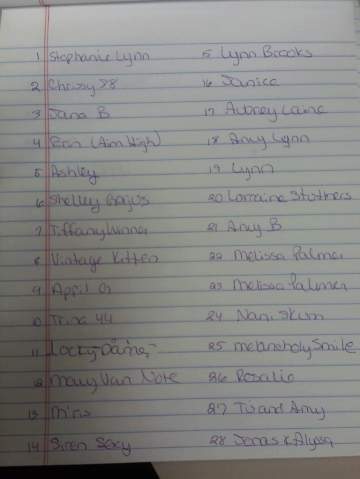 1 Stephanie Lynn
2 Chrissy 78
3 Dana B
4 Erin (Aim High)
5 Ashley
6 Shelley
7 Tiffany
8 Vintage Kitten
9 April
10 44
11 Locky
12 Mary Van Note
13
14 Siren Sexy
5 Lynn Brooks
16 Janice
17 Aubrey Laine
18 Amy Lynn
19 Lynn
20 Lorraine Stothers
21 Amy B
22 Melissa Palmer
23 Melissa Palmer
24 Nani
25 melancholy Smile
26 Rosalie
27 and Amy
28 Jonas & Alyssa